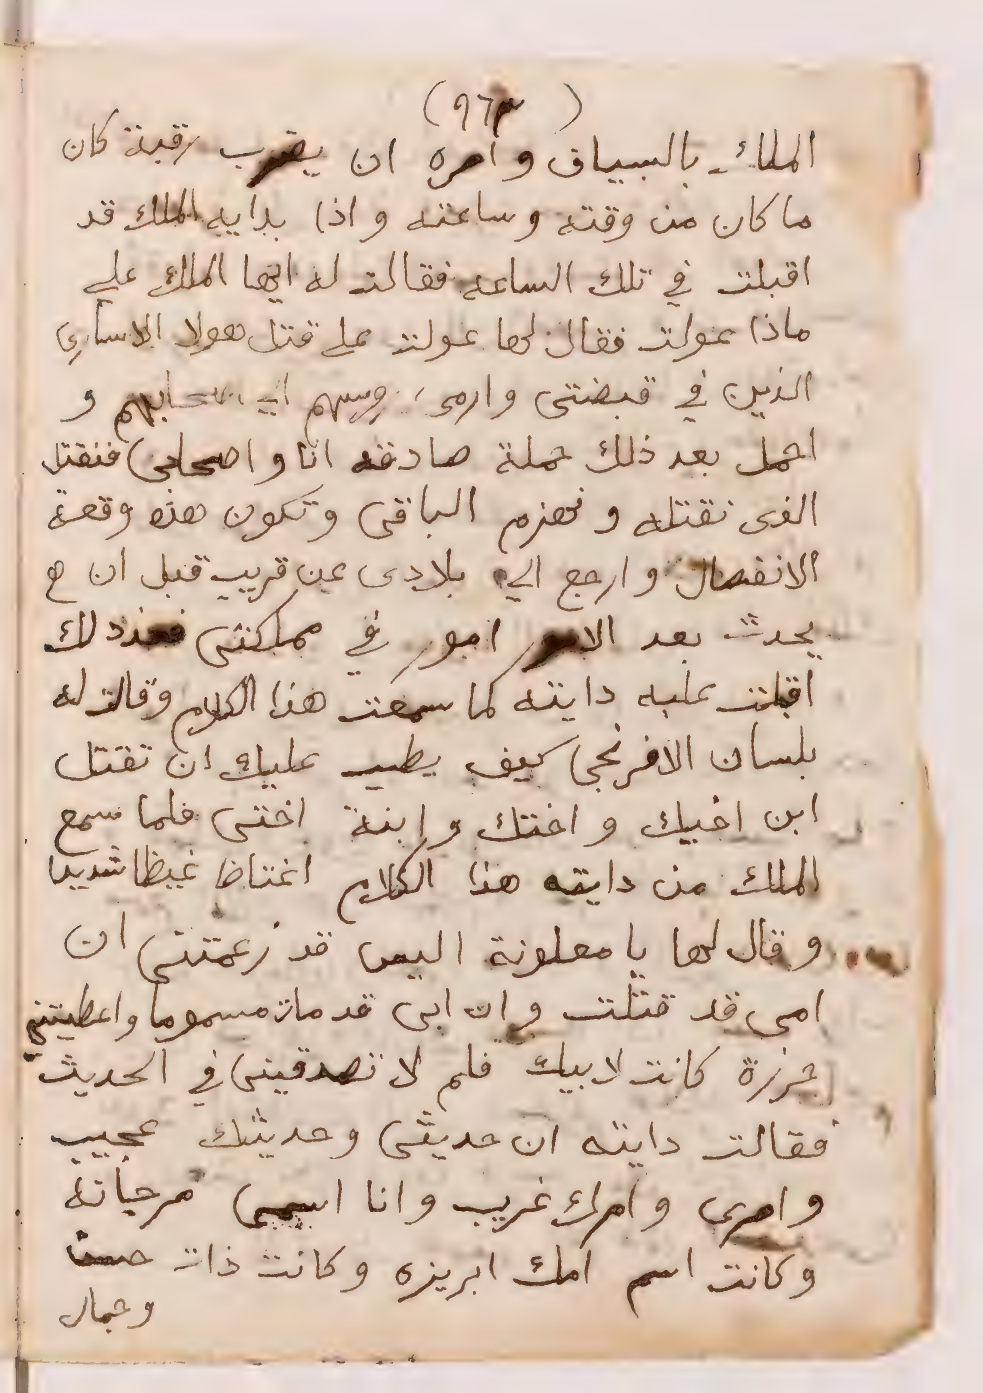 (٩٦٣)
الملك بالسياف وامره ان يضرب رقبة كان
ما كان من وقته وساعته واذا بدايه الملك قد
اقبلت في تلك الساعه فقالت له ايها الملك علي
ماذا عولت فقال لها عولت على قتل هولا الاساري
الذين في قبضتى وارمى روسهم الى اصحابهم و
احمل بعد ذلك حملة صادقه انا واصحابي فنقتل
الذى نقتله ونهزم الباقى وتكون هذه وقعة
الانفصال وارجع الي بلادى عن قريب قبل ان
يحدث بعد الامور امور في مملكتى فعند ذلك
اقبلت عليه دايته كما سمعت هذا الكلام وقالت له
بلسان الافرنجي كيف يطيب عليك ان تقتل
ابن اخيك و اختك وابنة اختى فلما سمع
الملك من دايته هذا الكلام اغتاظ غيظا شديدا
وقال لها يا معلونة اليس قد زعمتني ان
امى قد قتلت وان ابى قد مات مسموما واعطيتنى
خرزة كانت لابيك فلم لا تصدقيني في الحديث
فقالت دايته ان حديثى وحديثك عجيب
وامرى وامرك غريب وانا اسمى مرجانة
وكانت اسم امك ابريزه وكانت ذات حسن
وجمال